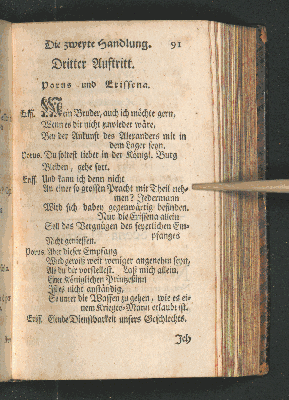 Die zweyte Handlung. 91
Dritter Auftritt.
Porus und Erissena.
Eriss. Mein Bruder, auch ich möchte gern,
Wenn es dir nicht zuwieder wäre,
Bey der Ankunft des Alexanders mit in
dem Lager seyn.
Porus. Du soltest lieber in der Königl. Burg
Bleiben, gehe fort.
Eriss. Und kann ich denn nicht
An einer so grossen Pracht mit Theil neh-
men? Jedermann
Wird sich dabey gegenwärtig befinden.
Nur die Erissena allein
Soll das Vergnügen des feyerlichen Em-
pfanges
Nicht geniessen.
Porus. Aber dieser Empfang
Wird gewiß weit weniger angenehm seyn,
Als du dir vorstellest. Laß mich allein,
Eine Königlichen Prinzeßinn
Ist es nicht anständig,
So unter die Waffen zu gehen, wie es ei-
nem Krieges-Mann erlaubt ist.
Eriss. Elende Dienstbarkeit unsers Geschlechts.
Ich